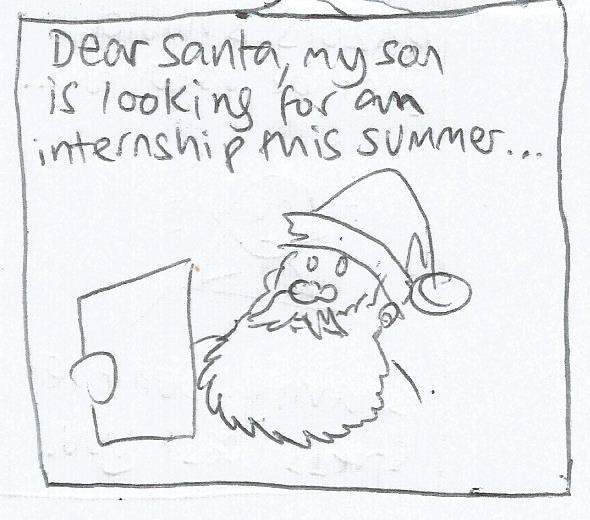 Dear Santa, my son
is looking for an
internship this summer...